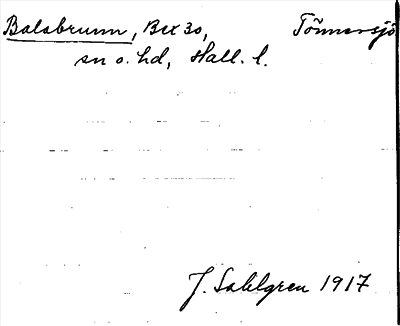 Balsbrunn, Bex 30, Tönnersjö
sn o. hd, Hall. l.
J. Sahlgren 1917